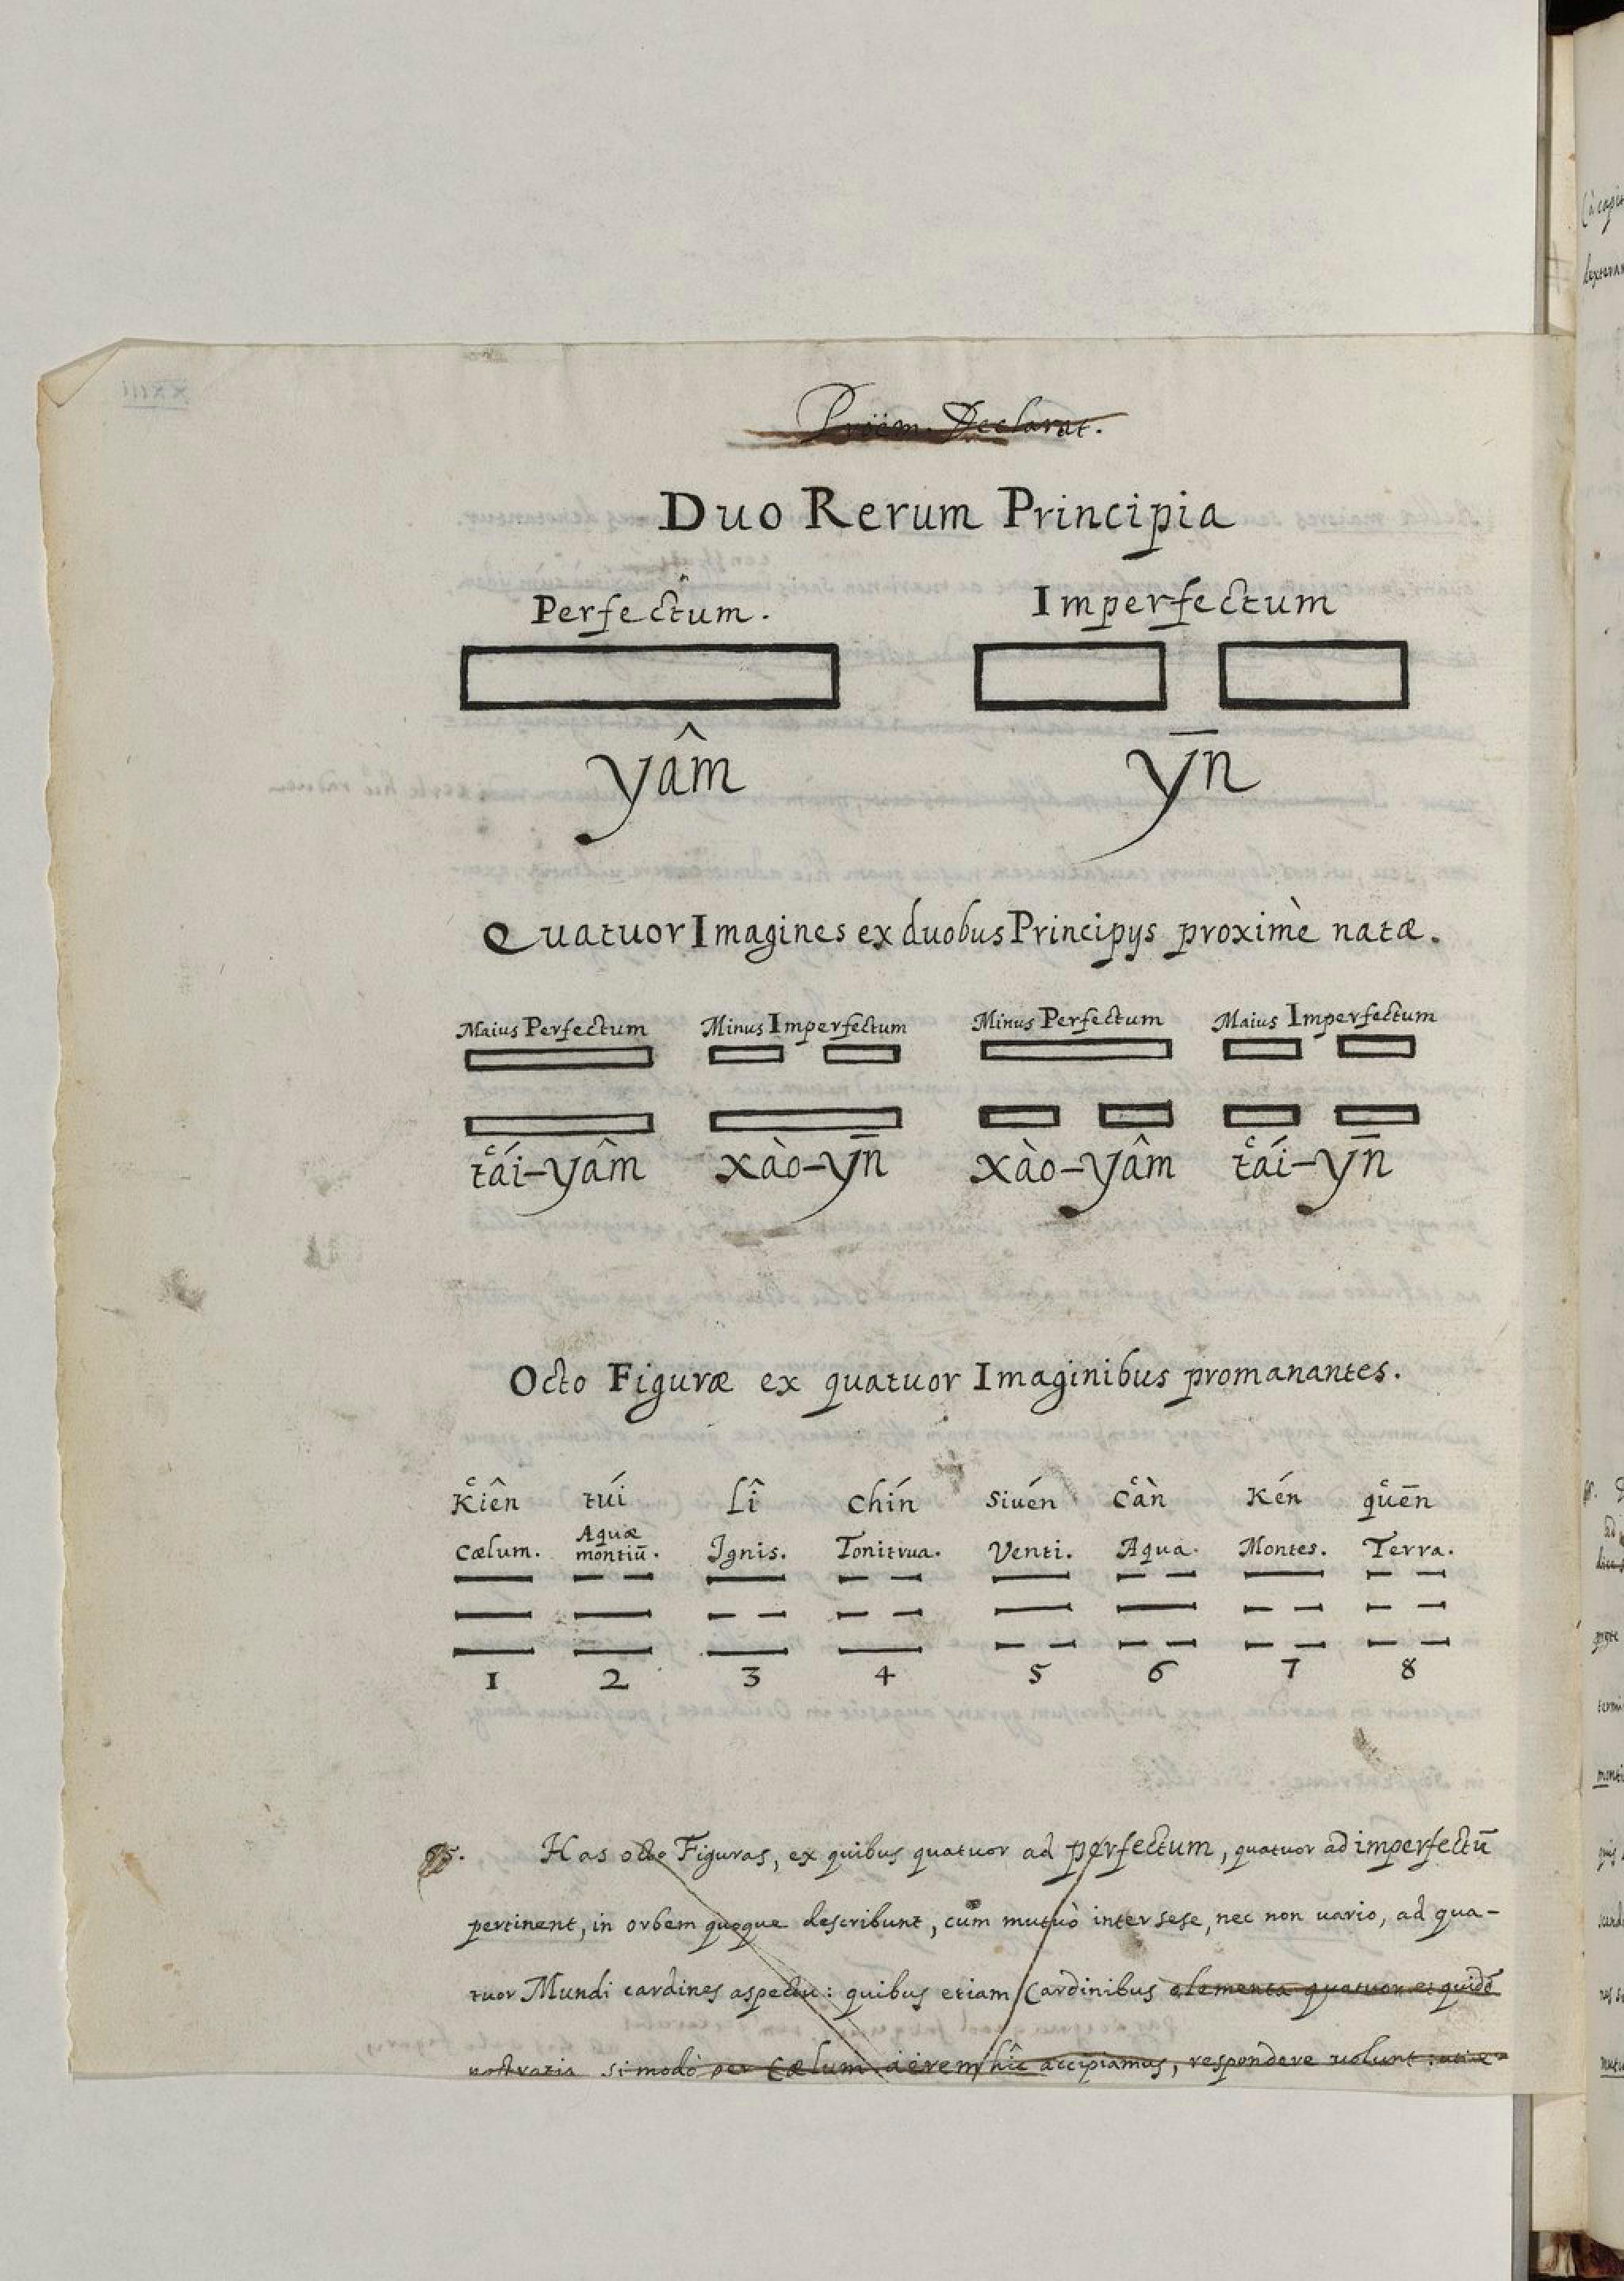 Proëm. Declarat.
Duo Rerum Principia
Perfectum. Imperfectum
yâm ȳn
Quatuor Imagines ex duobus Principijs proximè natæ.
Maius Perfectum Minus Imperfectum Minus Perfectum Maius Imperfectum
t̔ái-yâm xào-ȳn xào-yâm t̔ái-ȳn
Octo Figuræ ex quatuor Imaginibus promanantes.
K̔iên túi Lî Chín Siuén C̔àn Kén q̔uēn
Cælum. Aquæ montiū. Ignis. Tonitrua. Venti. Aqua. Montes. Terra.
1 2 3 4 5 6 7 8
Has octo Figuras, ex quibus quatuor ad perfectum, quatuor ad imperfectū
pertinent, in orbem quoque describunt, cum mutuò inter sese, nec non uario, ad qua-
tuor Mundi cardines aspectu: quibus etiam Cardinibus elementa quatuor et quidē
nostratia si modò per Cælum aërem hîc accipiamus, respondere uolunt: